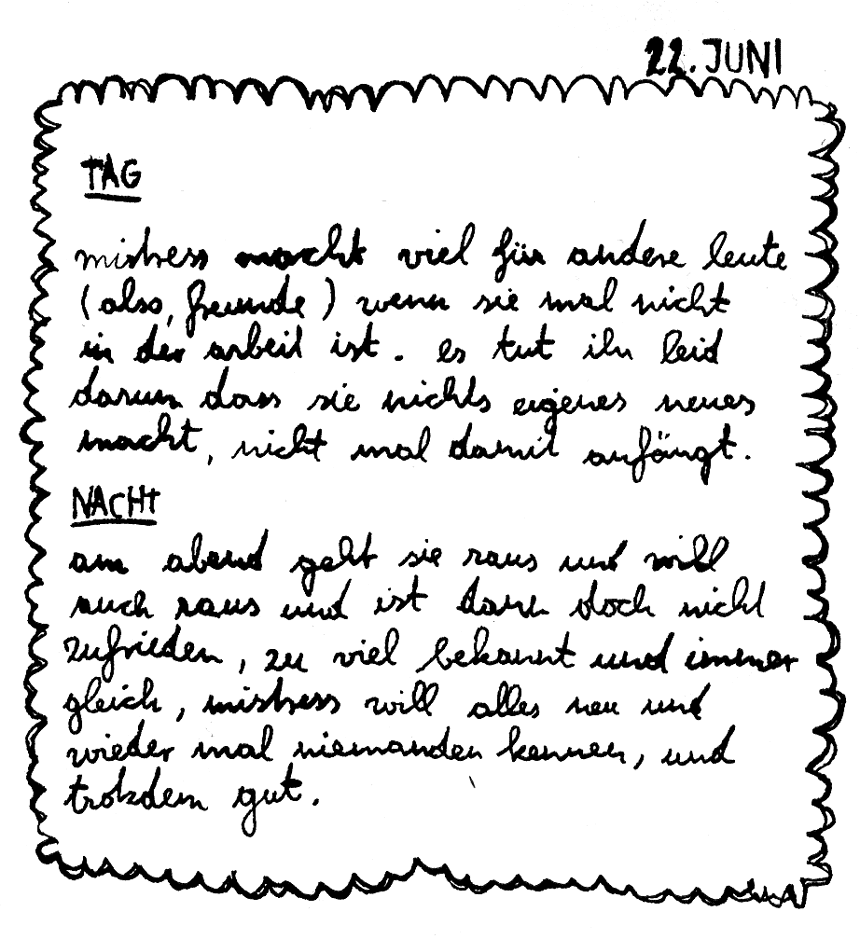 22. JUNI
TAG
mistress macht viel für andere leute
(also, freunde) wenn sie mal nicht
in der arbeit ist. es tut ihr leid
darum dass sie nichts eigenes neues
macht, nicht mal damit anfängt.
NACHT
am abend geht sie raus und will
auch raus und ist dann doch nicht
zufrieden, zu viel bekannt und immer
gleich, mistress will alles neu und
wieder mal niemanden kennen, und
trotzdem gut.